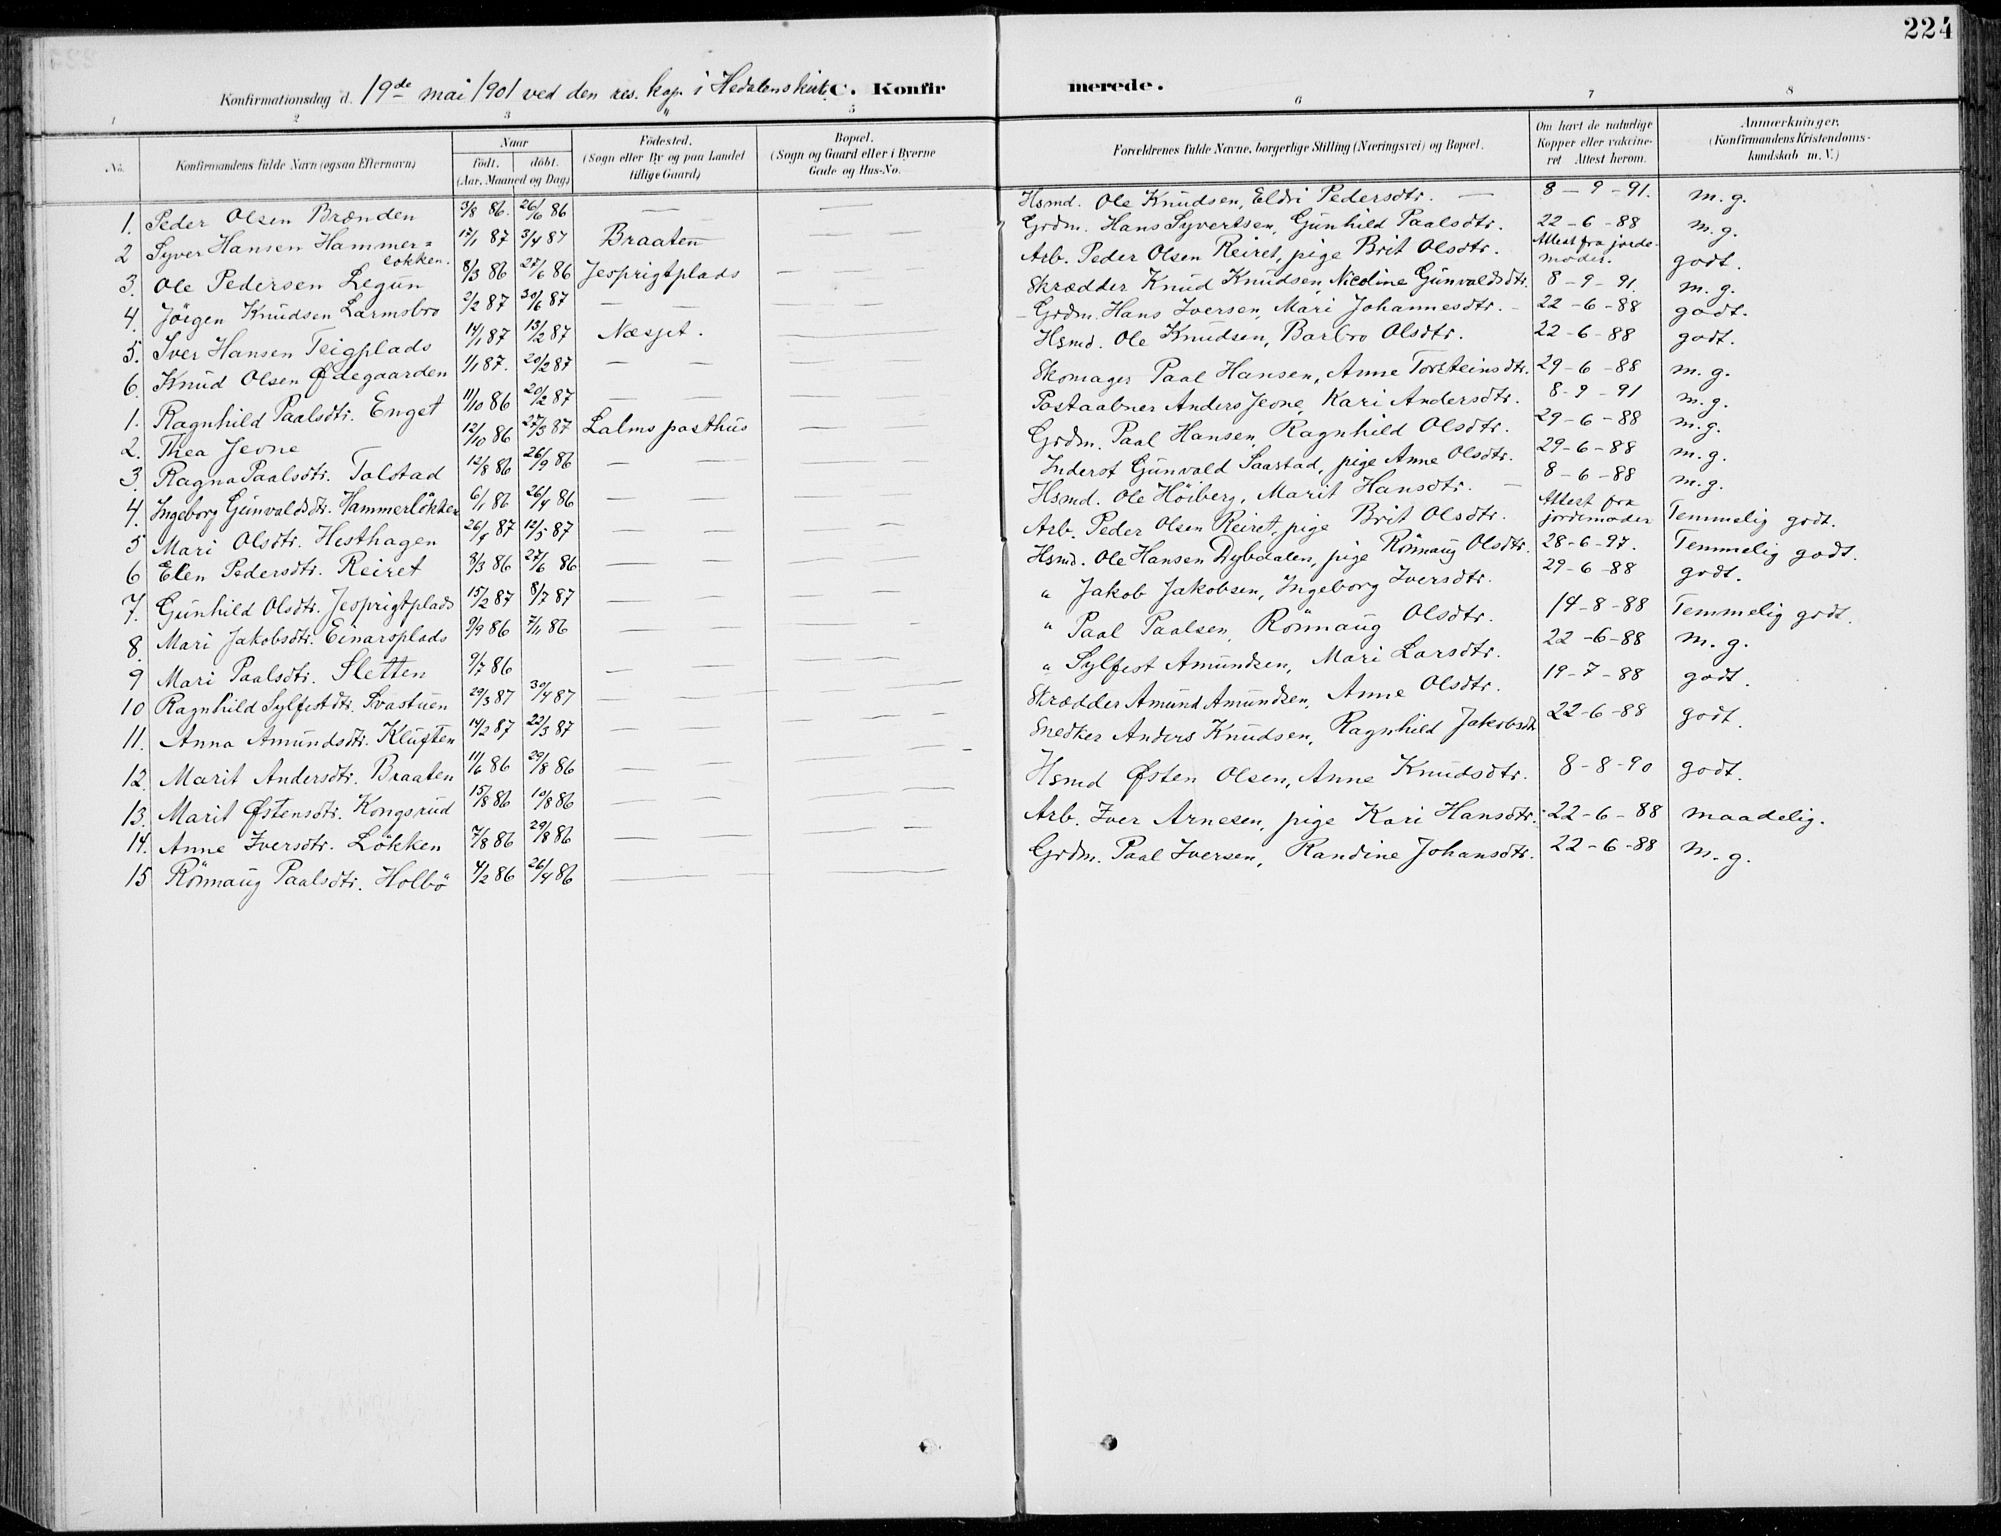 224
Konfirmationsdag d. 19de mai 1901 ved den res. kap. i Hedalens kirke. C. Konfirmerede.
1 2 3 4 5 6 7 8
No. Konfirmandens fulde Navn (ogsaa Efternavn) Naar født. døbt. (Aar, Maaned og Dag) Fødested. (Sogn eller By og paa Landet tillige Gaard) Bopæl. (Sogn og Gaard eller i Byerne Gade og Hus-No. Forældrenes fulde Navne, borgerlige Stilling (Næringsvei) og Bopæl. Om havt de naturlige Kopper eller vaccineret Attest herom. Anmærkninger. (Konfirmandens Kristendomskundskab m. V.)
1. Peder Olsen Brænden 3/8 86. 26/6 86 — — — Hsmd. Ole Knudsen, Eldri Pedersdtr. — 8-9-91. m. g.
2 Syver Hansen Hammerløkken. 17/1 87 3/4 87 Braaten — — Grdm. Hans Syvertsen, Gunhild Paalsdtr. 22-6-88 m. g.
3. Ole Pedersen Legun 8/3 86 27/6 86 Jesprigtplads — — Arb. Peder Olsen Reiret, pige Brit Olsdtr. Attest fra jordemoder. godt.
4. Jörgen Knudsen Larmsbro 2/2 87 30/6 87 — — — Skrædder Knud Knudsen, Nicoline Gunvaldsdtr. 8-9-91. m. g.
5. Iver Hansen Teigplads 14/1 87 13/2 87 Næsjet. — Grdm. Hans Iversen, Mari Johannesdtr. — 22-6-88 godt.
6. Knud Olsen Ødegaarden 1/1 87. 20/2 87 — — — Hsmd. Ole Knudsen, Barbro Olsdtr. 22-6-88 godt.
1. Ragnhild Paalsdtr. Enget 11/10 86 20/2 87 — — — Skomager Paal Hansen, Anne Torsteinsdtr. 29-6-88 m. g.
2. Thea Jevne 12/10 86 27/3 87 Lalms posthus — Postaabner Anders Jevne, Kari Andersdtr. 8-9-91 m. g.
3. Ragna Paalsdtr. Tolstad 12/8 86 26/9 86 — — — Grdm. Paal Hansen, Ragnhild Olsdtr. 29-6-88 m. g.
4. Ingeborg Gunvaldsdtr. Hammerlökken 6/1 86 26/4 86 — — — Inderst Gunvald Saastad, pige Anne Olsdtr. 29-6-88 m. g.
5 Mari Olsdtr. Hesthagen 12/5 87 — — — Hsmd. Ole Höiberg, Marit Hansdtr. — 8-6-88 m. g.
6 Elen Pedersdtr. Reiret 3/3 86 27/6 86 — — — Arb. Peder Olsen Reiret, pige Brit Olsdtr. Attest fra jordemoder Temmelig godt.
7. Gunhild Olsdtr. Jesprigtplads 15/2 87 8/7 87 — — — Hsmd. Ole Hansen Dybdalen, pige Rönnaug Olsdtr. 28-6-97. Temmelig godt.
8. Mari Jakobsdtr. Einarsplads 9/9 86 7/11 86 — — — " Jakob Jakobsen, Ingeborg Iversdtr. 29-6-88 godt.
9 Mari Paalsdtr. Sletten 9/7 86 — — — " Paal Paalsen, Rönnaug Olsdtr. 14-8-88 Temmelig godt.
10 Ragnhild Sylfestdtr. Svastuen 29/3 87 30/4 87 — — — " Sylfest Amundsen, Mari Larsdtr. 22-6-88 m. g.
11. Anna Amundsdtr. Kluften 14/2 87 22/3 87 — — — Skrædder Amund Amundsen, Anne Olsdtr. 19-7-88 godt.
12. Marit Andersdtr. Braaten 11/6 86 29/8 86 — — — Snedker Anders Knudsen, Ragnhild Jakobsdtr. 22-6-88 godt.
13. Marit Østensdtr. Kongsrud 15/8 86 10/8 86 — — — Hsmd Østen Olsen, Anne Knudsdtr. 8-8-90 godt.
14. Anne Iversdtr. Lökken 7/8 86 29/8 86 — — — Arb. Iver Arnesen, pige Kari Hansdtr. 22-6-88 maadelig.
15 Rönnaug Paalsdtr. Holbö 4/2 86 26/4 86 — — Grdm. Paal Iversen, Randine Johansdtr. 22-6-88 m. g.